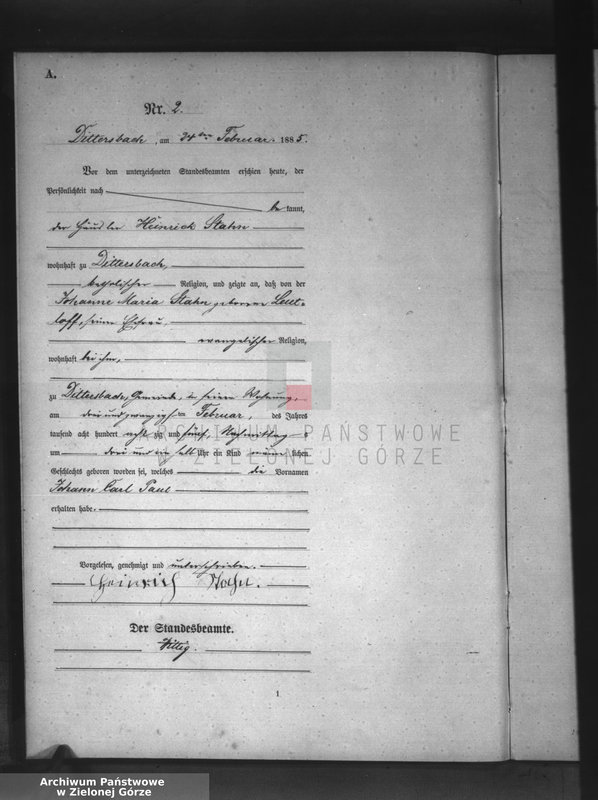 A.
Nr. 2.
Dittersbach, am 24ten Februar. 1885.
Vor dem unterzeichneten Standesbeamten erschien heute, der
Persönlichkeit nach
be kannt,
der Häusler Heinrich Stahn
wohnhaft zu Dittersbach,
katholischer Religion, und zeigte an, daß von der
Johanne Maria Stahn geborenen Leut-
loff, seiner Ehefrau,
evangelischer Religion,
wohnhaft bei ihm,
zu Dittersbach, Gemeinde, in seiner Wohnung,
am drei und zwanzigsten Februar, des Jahres
tausend acht hundert acht zig und fünf, Nachmittag s
um drei und ein halb Uhr ein Kind männ lichen
Geschlechts geboren worden sei, welches die Vornamen
Johann Carl Paul
erhalten habe.
Vorgelesen, genehmigt und unterschrieben.
Heinrich Stahn.
Der Standesbeamte.
1
ARCHIWUM PAŃSTWOWE
W ZIELONEJ GÓRZE
Archiwum Państwowe
w Zielonej Górze